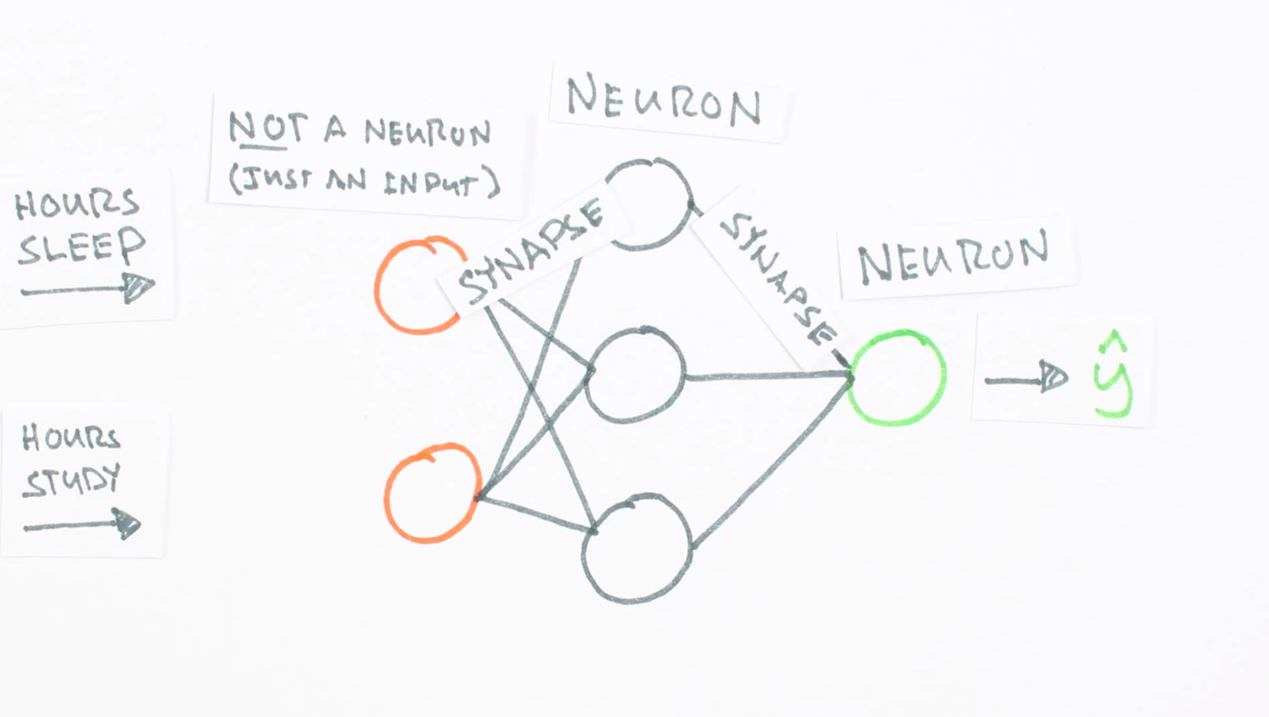 NEURON
NOT A NEURON
(JUST AN INPUT)
HOURS
SLEEP
SYNAPSE
SYNAPSE
NEURON
HOURS
STUDY
ŷ